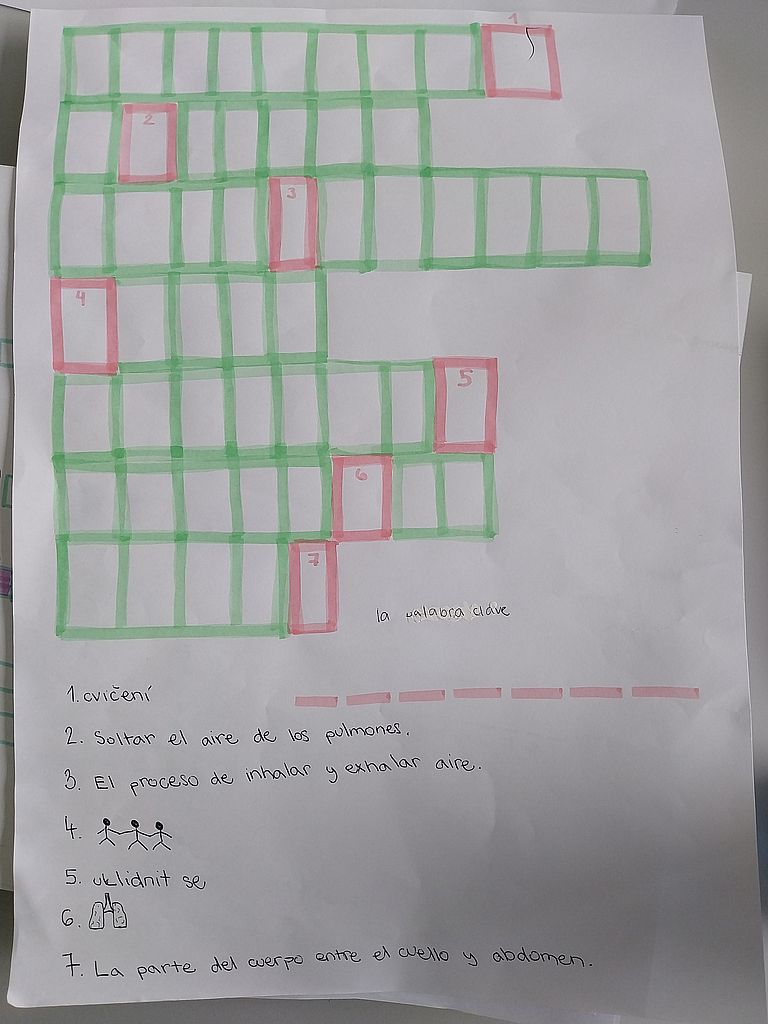 1
2
3
4
5
6
7
la palabra clave
1. cvičení
2. Soltar el aire de los pulmones.
3. El proceso de inhalar y exhalar aire.
4.
5. uklidnit se
6.
7. La parte del cuerpo entre el cuello y abdomen.